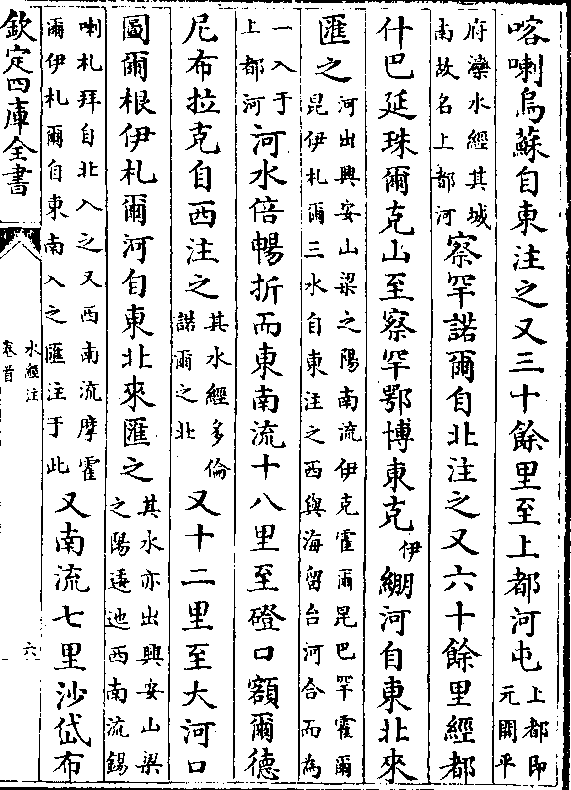 喀喇烏蘇自東注之又三十餘里至上都河屯上都即元開平
府灤水經其城南故名上都河察罕諾爾自北注之又六十餘里經都
什巴延珠爾克山至察罕鄂博東克伊綳河自東北來
匯之河出興安山梁之陽南流伊克霍爾昆巴罕霍爾昆伊札爾三水自東注之西與海留台河合而為
一入于上都河河水倍暢折而東南流十八里至磴口額爾德
尼布拉克自西注之其水經多倫諾爾之北又十二里至大河口
圖爾根伊札爾河自東北來匯之其水亦出興安山梁之陽逶迤西南流錫
喇札拜自北入之又西南流摩霍爾伊札爾自東南入之匯注于此又南流七里沙岱布
欽定四庫全書
水經注
卷首
六